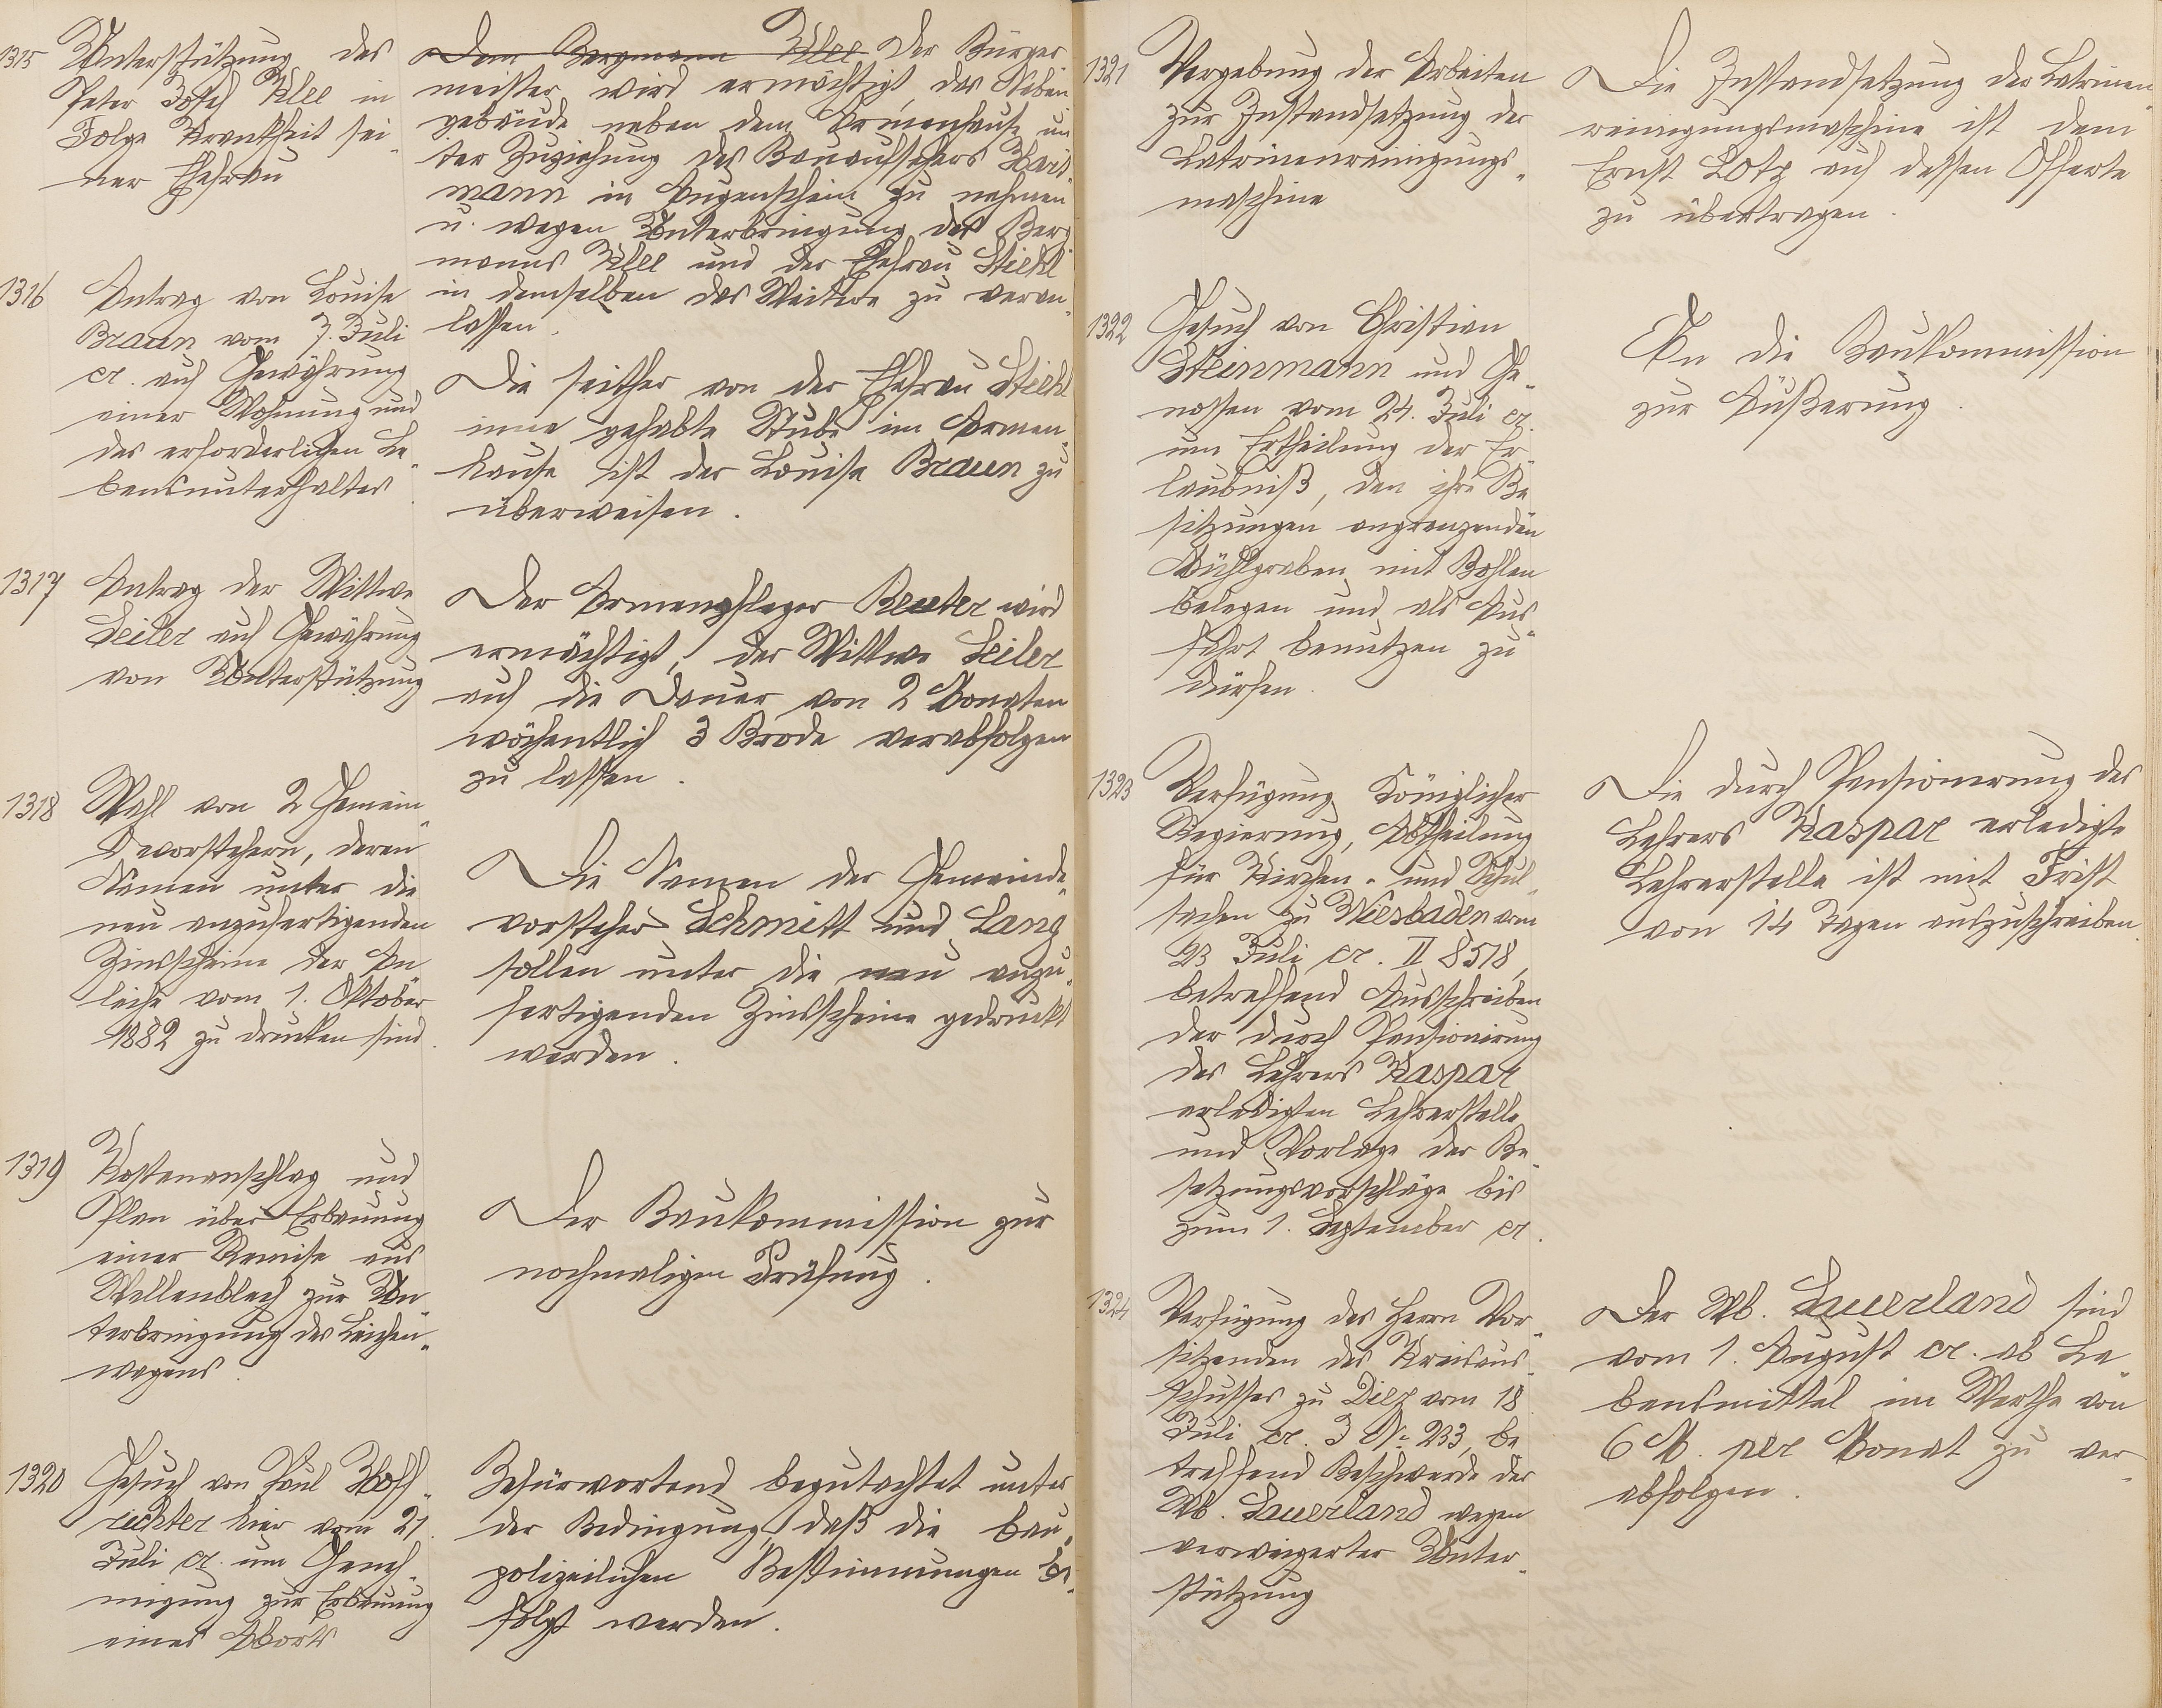 1315
Unterstützung des
Peter Josef Klee in
Folge Krankheit sei-
ner Ehefrau
Dem Bergmann Klee Der Bürger-
meister wird ermächtigt, das Neben-
gebäude neben dem Armenhause un-
ter Zuziehung des Bauaufsehers Hart-
mann in Augenschein zu nehmen
u. wegen Unterbringung des Berg-
manns Klee und der Ehefrau Stiehl
in demselben das Weitere zu veran-
lassen.
1316
Antrag von Louise
Braun vom 7. Juli
cr. auf Gewährung
einer Wohnung und
des erforderlichen Le-
bensunterhaltes.
Die seither von der Ehefrau Stiehl
inne gehabte Stube im Armen-
hause ist der Louise Braun zu
überweisen.
1317
Antrag der Wittwe
Seiler auf Gewährung
von Unterstützung
Der Armenpfleger Reuter wird
ermächtigt, der Wittwe Seiler
auf die Dauer von 2 Monaten
wöchentlich 3 Brode verabfolgen
zu lassen.
1318
Wahl von 2 Gemein-
devorstehern, deren
Namen unter die
neu anzufertigenden
Zinsscheine der An-
leihe vom 1. Oktober
1882 zu drucken sind.
Die Namen der Gemeinde-
vorsteher Schmitt und Lang
sollen unter die neu anzu-
fertigenden Zinsscheine gedruckt
werden.
1319
Kostenanschlag und
Plan über Erbauung
einer Remise aus
Wellenblech zur Un-
terbringung des Leichen-
wagens.
Der Baukommission zur
nochmaligen Prüfung.
1320
Gesuch von Paul Hoff-
richter hier vom 21.
Juli cr. um Geneh-
migung zur Erbauung
eines Aborts
Befürwortend begutachtet unter
der Bedingung, daß die bau-
polizeilichen Bestimmungen be-
folgt werden.
1321
Vergebung der Arbeiten
zur Instandsetzung der
Latrinenreinigungs-
maschine
Die Instandsetzung der Latrinen-
reinigungsmaschine ist dem
Ernst Lotz auf dessen Offerte
zu übertragen.
1322
Gesuch von Christian
Steinmann und Ge-
nossen vom 24. Juli cr.
um Ertheilung der Er-
laubniß, den ihre Be-
sitzungen angrenzenden
Mühlgraben mit Bohlen
belegen und als Aus-
fahrt benutzen zu
dürfen.
An die Baukommission
zur Äußerung.
1323
Verfügung Königlicher
Regierung, Abtheilung
für Kirchen- und Schul-
sachen zu Wiesbaden vom
23 Juli cr. II 8518,
betreffend Ausschreiben
der durch Pensionirung
des Lehrers Kaspar
erledigten Lehrerstelle
und Vorlage der Be-
setzungsvorschläge bis
zum 1. September cr.
Die durch Pensionierung des
Lehrers Kaspar erledigte
Lehrerstelle ist mit Frist
von 14 Tagen auszuschreiben.
1324
Verfügung des Herrn Vor-
sitzenden des Kreisaus-
schusses zu Diez vom 18.
Juli cr. J No 233, be-
treffend Beschwerde der
Wb. Sauerland wegen
verweigerter Unter-
stützung
Der Wb. Sauerland sind
vom 1. August cr. ab Le-
bensmittel im Werthe von
6 M. per Monat zu ver-
abfolgen.